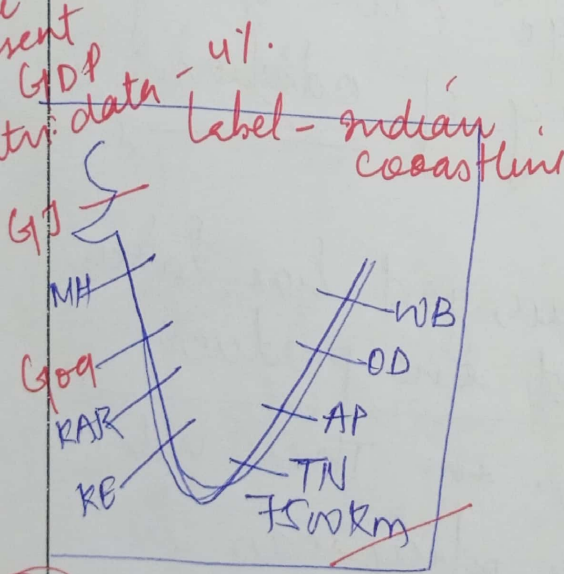 sent
GDP
data - 4%.
Label - Indian
coastline
GJ
MH
Goa
KAR
KE
WB
OD
AP
TN
7500 km